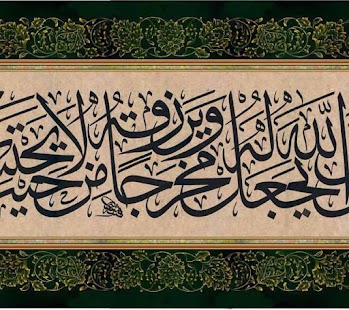 الله يجعل له مخرجا ويرزقه من حيث لا يحتسب